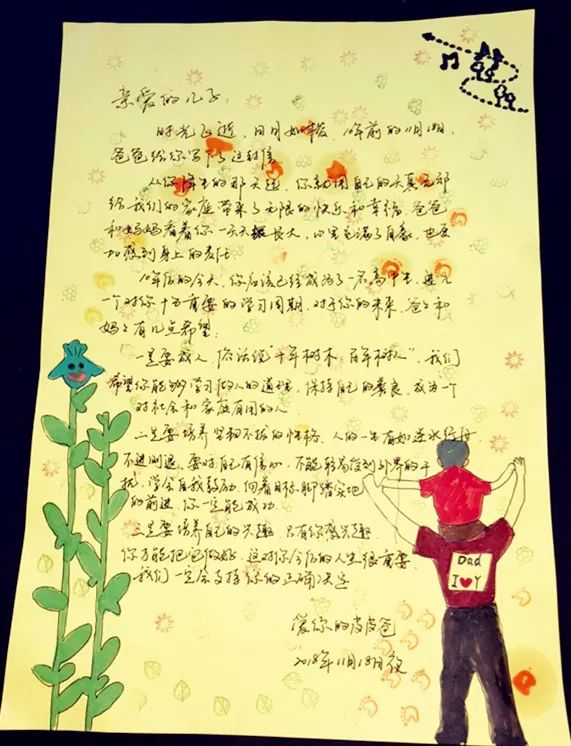 亲爱的儿子:
时光飞逝,日月如梭,10年前的11月18日,
爸爸给你写下了这封信
从你降生的那天起,你就用自己的天真无邪
给我们的家庭带来了无限的快乐和幸福,爸爸
和妈妈看着你一天天长大,心里充满了自豪,也更
加感到身上的责任
10年后的今天,你应该已经成为了一名高中生,进入
一个对你十分重要的学习周期,对于你的未来,爸爸和
妈妈有几点希望:
一是要成人,俗话说“十年树木,百年树人”,我们
希望你能够学习做人的道理,保持自己的善良,成为一个
对社会和家庭有用的人
二是要培养坚韧不拔的性格,人的一生有如逆水行舟,
不进则退,要对自己有信心,不能轻易受到外界的干
扰,学会自我努力,向着目标脚踏实地
的前进,你一定能成功
三是要培养自己的兴趣,只有你感兴趣,
你才能把它做好,这对你今后的人生很重要,
我们一定会支持你的正确决定
爱你的皮皮爸
2018年11月18日夜
Dad
I Y